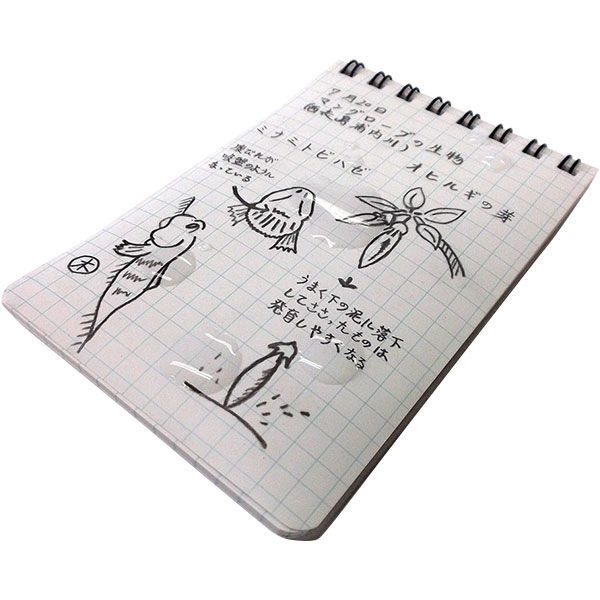 7月20日
マングローブの生物
(西表島浦内川)
ミナミトビハゼ
オヒルギの芽
腹びれが
吸盤のように
なっている
木
うまく下の泥に落下
してささったものは
発育しやすくなる